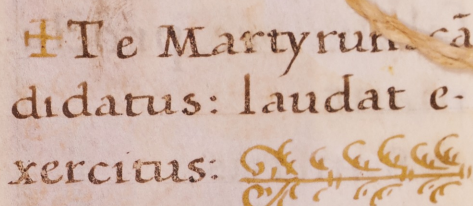 ✠Te Martyrum cã
didatus: laudat e-
xercitus: